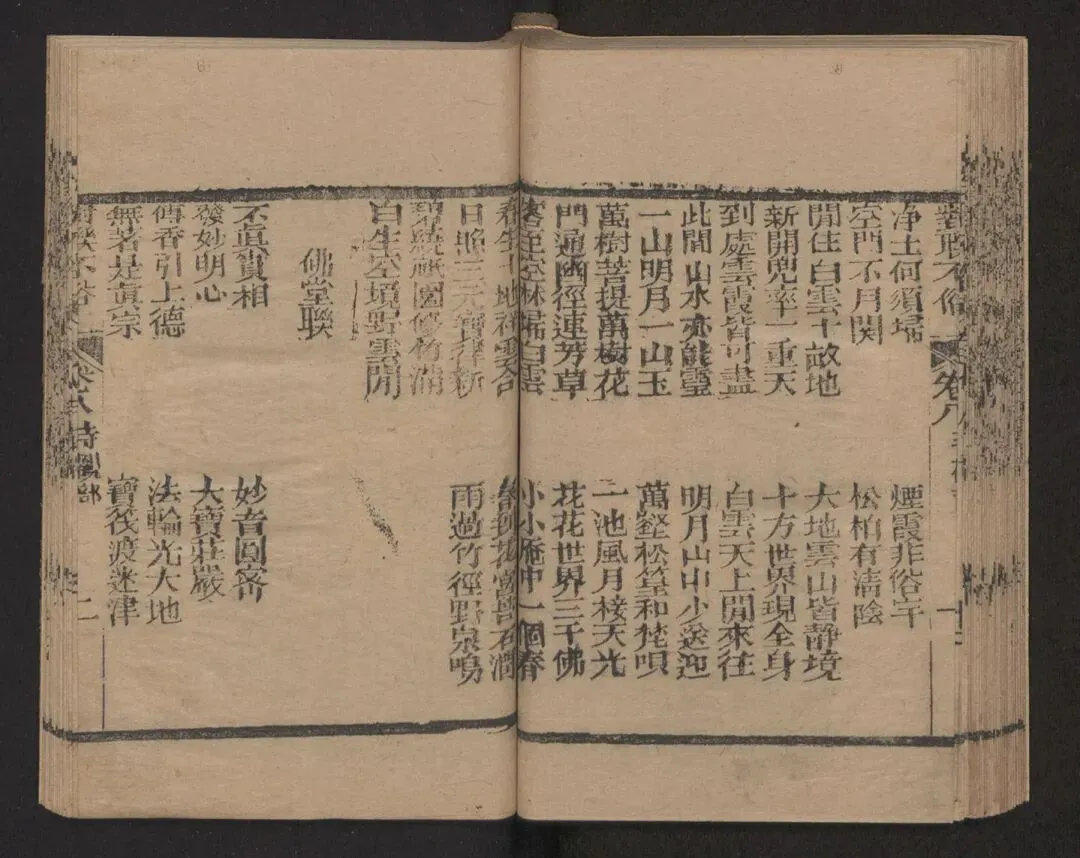 對聯不俗
卷八
净土何須掃
煙霞非俗宇
空門不月関
松柏有清陰
閒住白雲十畝地
大地雲山皆静境
新開兜率一重天
十方世界現全身
到處雲霞皆可盡
白雲天上閒來往
此間山水亦能靈
明月山中少送迎
一山明月一山玉
萬壑松篁和梵唄
萬樹菩提萬樹花
一池風月接天光
門通幽徑連芳草
花花世界三千佛
空林掃白雲
小小庵中一個春
春生十地祥雲合
日照三元寶
雨過竹徑野泉鳴
繞祇園修竹滿
白生空 點雲閒
佛堂聯
不眞實相
妙音圓密
發妙明心
大寶莊嚴
傳香引上德
法輪光大地
無著是眞宗
寶筏渡迷津
對聯不俗
卷八
二